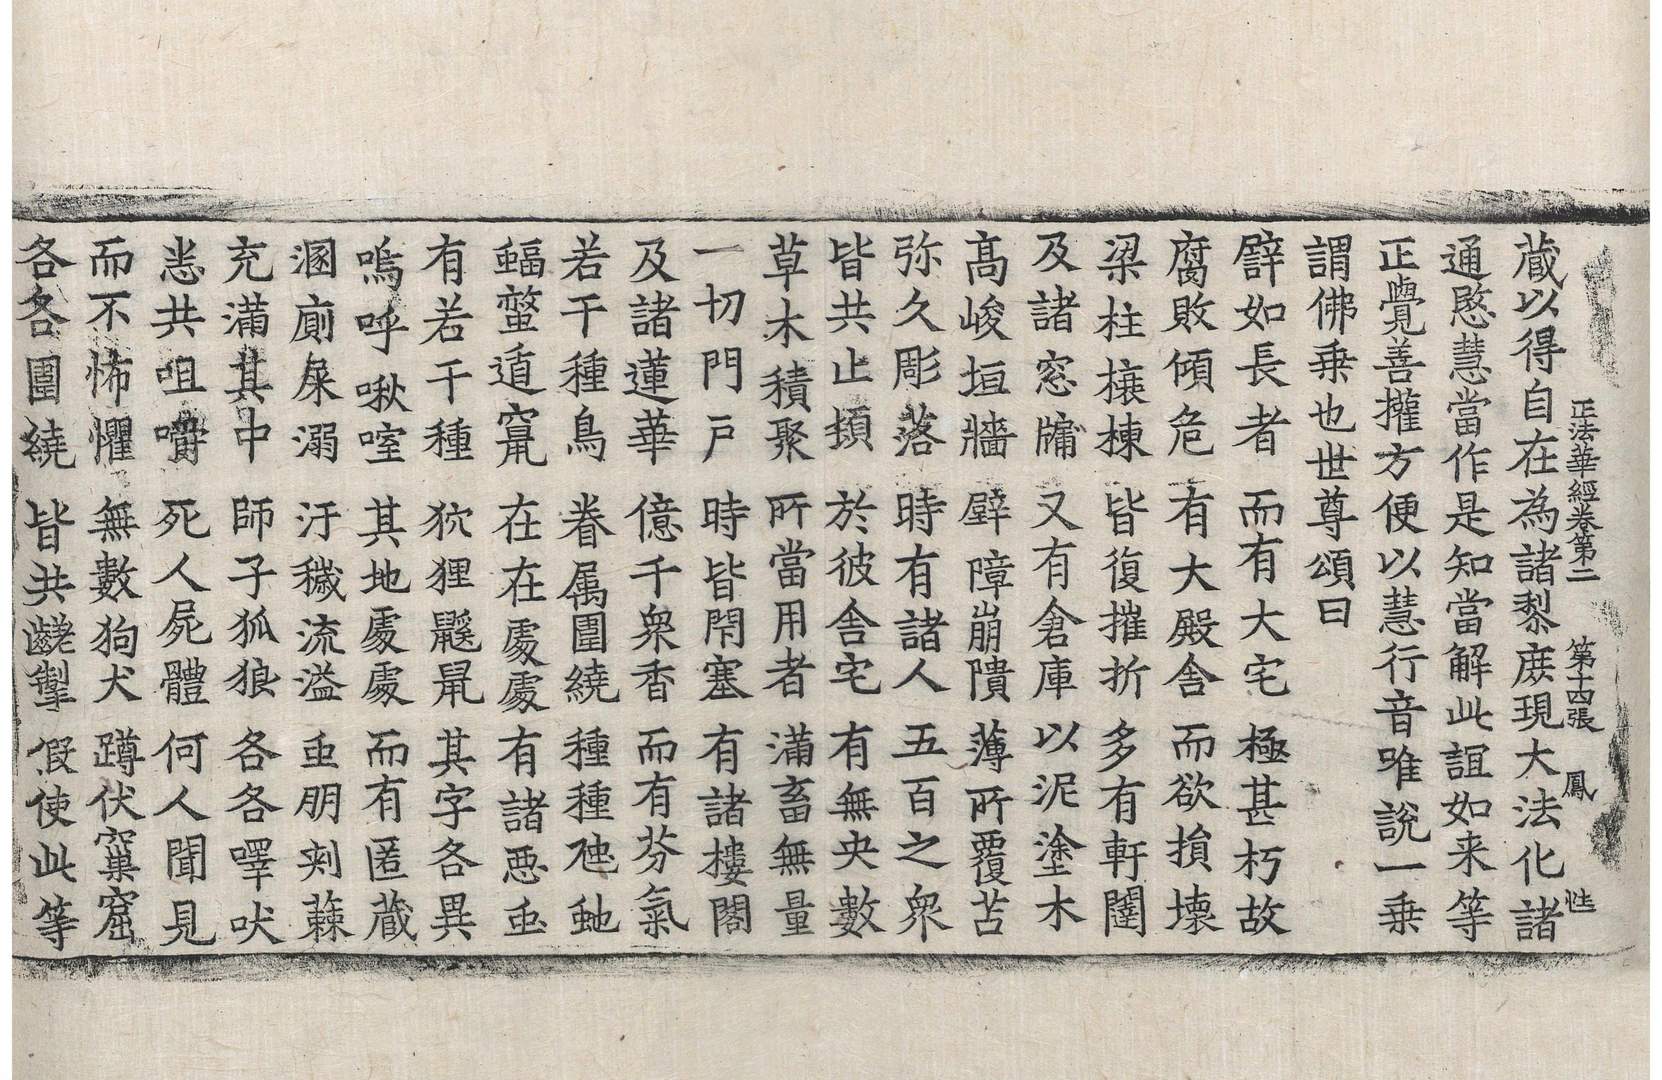 正法華經卷第二　第十四張　鳳　性
藏以得自在為諸黎庶現大法化諸
通愍慧當作是知當解此誼如来等
正覺善攉方便以慧行音唯說一乗
謂佛乗也世尊頌曰
譬如長者　而有大宅　極甚朽故
腐敗傾危　有大殿舎　而欲損壊
梁柱榱棟　皆復摧折　多有軒闥
及諸窓牖　又有倉庫　以泥塗木
髙峻垣牆　壁障崩隤　薄所覆苫
弥久彫落　時有諸人　五百之衆
皆共止頓　於彼舎宅　有無央數
草木積聚　所當用者　滿畜無量
一切門戸　時皆閇塞　有諸樓閣
及諸蓮華　億千衆香　而有芬氣
若干種鳥　眷属圍繞　種種虺虵
蝠螫遁竄　在在處處　有諸惡䖝
有若干種　狖狸鼷鼠　其字各異
嗚呼啾喹　其地處處　而有匿藏
溷廁屎溺　汙穢流溢　䖝朋刺蕀
充滿其中　師子狐狼　各各嘷吠
恙共咀嚼　死人屍體　何人聞見
而不怖懼　無數狗犬　蹲伏窠窟
各各圍繞　皆共齜掣　假使此等